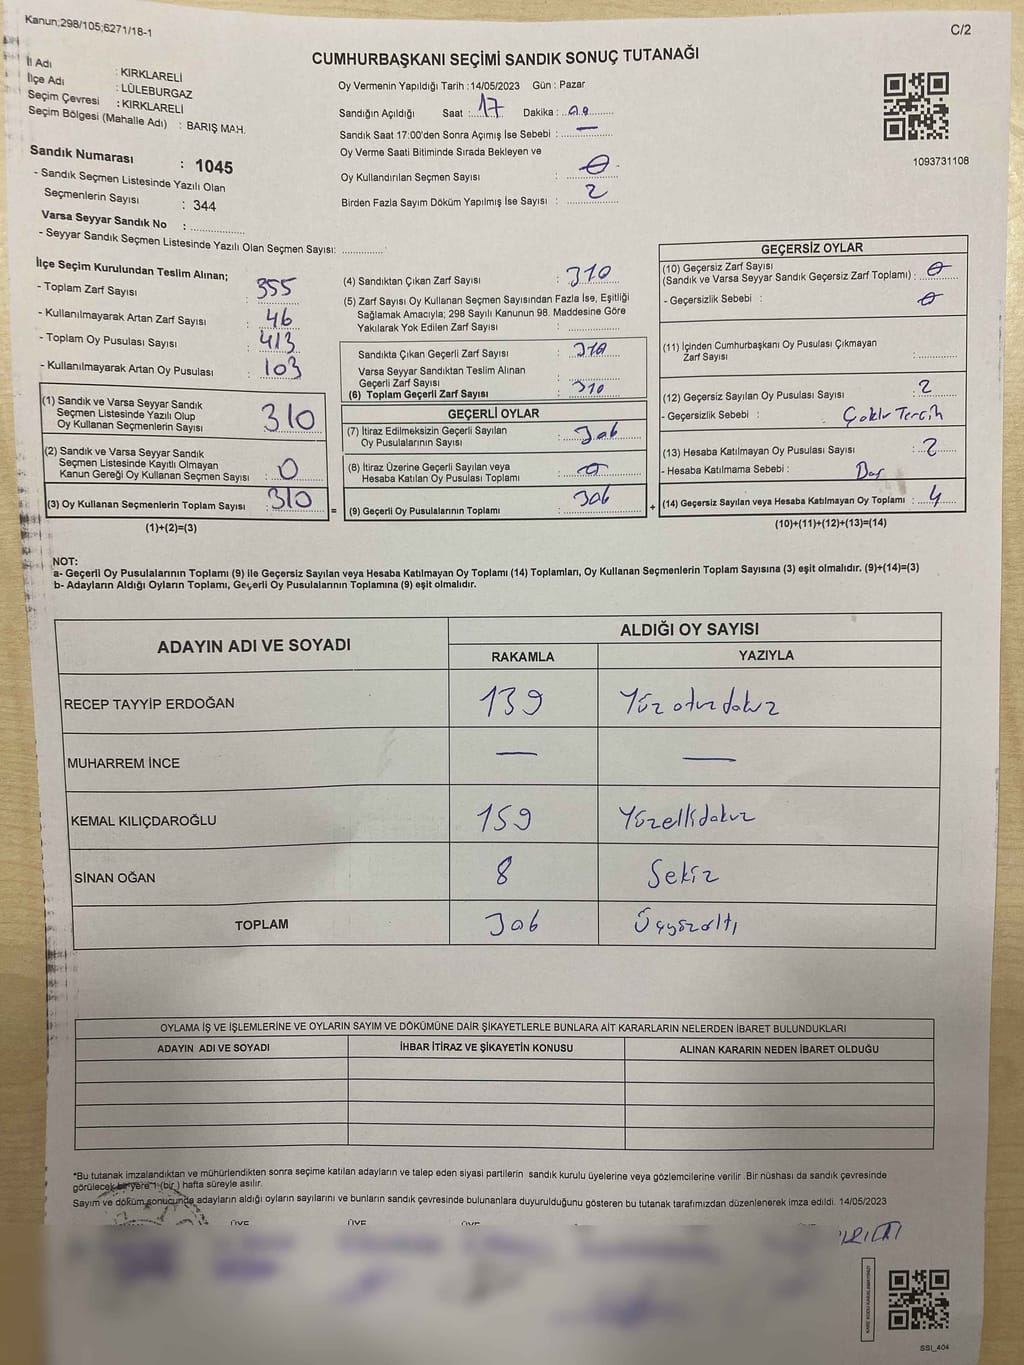 Kanun;298/105;6271/18-1
C/2
CUMHURBAŞKANI SEÇİMİ SANDIK SONUÇ TUTANAĞI
İl Adı : KIRKLARELİ
İlçe Adı : LÜLEBURGAZ
Seçim Çevresi : KIRKLARELİ
Seçim Bölgesi (Mahalle Adı) : BARIŞ MAH.
Sandık Numarası : 1045
- Sandık Seçmen Listesinde Yazılı Olan
Seçmenlerin Sayısı : 344
Varsa Seyyar Sandık No : ..................
- Seyyar Sandık Seçmen Listesinde Yazılı Olan Seçmen Sayısı: ..............
Oy Vermenin Yapıldığı Tarih : 14/05/2023 Gün : Pazar
Sandığın Açıldığı Saat : 17 Dakika :
Sandık Saat 17:00'den Sonra Açımış İse Sebebi : —
Oy Verme Saati Bitiminde Sırada Bekleyen ve
Oy Kullandırılan Seçmen Sayısı : 0
Birden Fazla Sayım Döküm Yapılmış İse Sayısı : 2
1093731108
İlçe Seçim Kurulundan Teslim Alınan;
- Toplam Zarf Sayısı : 355
- Kullanılmayarak Artan Zarf Sayısı : 46
- Toplam Oy Pusulası Sayısı : 413
- Kullanılmayarak Artan Oy Pusulası : 103
(1) Sandık ve Varsa Seyyar Sandık
Seçmen Listesinde Yazılı Olup
Oy Kullanan Seçmenlerin Sayısı : 310
(2) Sandık ve Varsa Seyyar Sandık
Seçmen Listesinde Kayıtlı Olmayan
Kanun Gereği Oy Kullanan Seçmen Sayısı : 0
(3) Oy Kullanan Seçmenlerin Toplam Sayısı : 310
(1)+(2)=(3)
=
(4) Sandıktan Çıkan Zarf Sayısı : 310
(5) Zarf Sayısı Oy Kullanan Seçmen Sayısından Fazla İse, Eşitliği
Sağlamak Amacıyla; 298 Sayılı Kanunun 98. Maddesine Göre
Yakılarak Yok Edilen Zarf Sayısı : ..............
Sandıkta Çıkan Geçerli Zarf Sayısı : 310
Varsa Seyyar Sandıktan Teslim Alınan
Geçerli Zarf Sayısı : ..............
(6) Toplam Geçerli Zarf Sayısı : 310
GEÇERLİ OYLAR
(7) İtiraz Edilmeksizin Geçerli Sayılan
Oy Pusulalarının Sayısı : 306
(8) İtiraz Üzerine Geçerli Sayılan veya
Hesaba Katılan Oy Pusulası Toplamı : 0
(9) Geçerli Oy Pusulalarının Toplamı : 306
+
GEÇERSİZ OYLAR
(10) Geçersiz Zarf Sayısı
(Sandık ve Varsa Seyyar Sandık Geçersiz Zarf Toplamı) : 0
- Geçersizlik Sebebi : 0
(11) İçinden Cumhurbaşkanı Oy Pusulası Çıkmayan
Zarf Sayısı : ............
(12) Geçersiz Sayılan Oy Pusulası Sayısı : 2
- Geçersizlik Sebebi : Çoklu Tercih
(13) Hesaba Katılmayan Oy Pusulası Sayısı : 2
- Hesaba Katılmama Sebebi : Boş
(14) Geçersiz Sayılan veya Hesaba Katılmayan Oy Toplamı : 4
(10)+(11)+(12)+(13)=(14)
NOT:
a- Geçerli Oy Pusulalarının Toplamı (9) ile Geçersiz Sayılan veya Hesaba Katılmayan Oy Toplamı (14) Toplamları, Oy Kullanan Seçmenlerin Toplam Sayısına (3) eşit olmalıdır. (9)+(14)=(3)
b- Adayların Aldığı Oyların Toplamı, Geçerli Oy Pusulalarının Toplamına (9) eşit olmalıdır.
ADAYIN ADI VE SOYADI ALDIĞI OY SAYISI
RAKAMLA YAZIYLA
RECEP TAYYİP ERDOĞAN 139 Yüz otuz dokuz
MUHARREM İNCE — —
KEMAL KILIÇDAROĞLU 159 Yüzellidokuz
SİNAN OĞAN 8 Sekiz
TOPLAM 306 Üçyüzaltı
OYLAMA İŞ VE İŞLEMLERİNE VE OYLARIN SAYIM VE DÖKÜMÜNE DAİR ŞİKAYETLERLE BUNLARA AİT KARARLARIN NELERDEN İBARET BULUNDUKLARI
ADAYIN ADI VE SOYADI İHBAR İTİRAZ VE ŞİKAYETİN KONUSU ALINAN KARARIN NEDEN İBARET OLDUĞU
*Bu tutanak imzalandıktan ve mühürlendikten sonra seçime katılan adayların ve talep eden siyasi partilerin sandık kurulu üyelerine veya gözlemcilerine verilir .Bir nüshası da sandık çevresinde
görülecek bir yere 1 (bir ) hafta süreyle asılır.
Sayım ve döküm sonucunda adayların aldığı oyların sayılarını ve bunların sandık çevresinde bulunanlara duyurulduğunu gösteren bu tutanak tarafımızdan düzenlenerek imza edildi. 14/05/2023
ÜYE ÜYE ÜYE
SSI_404